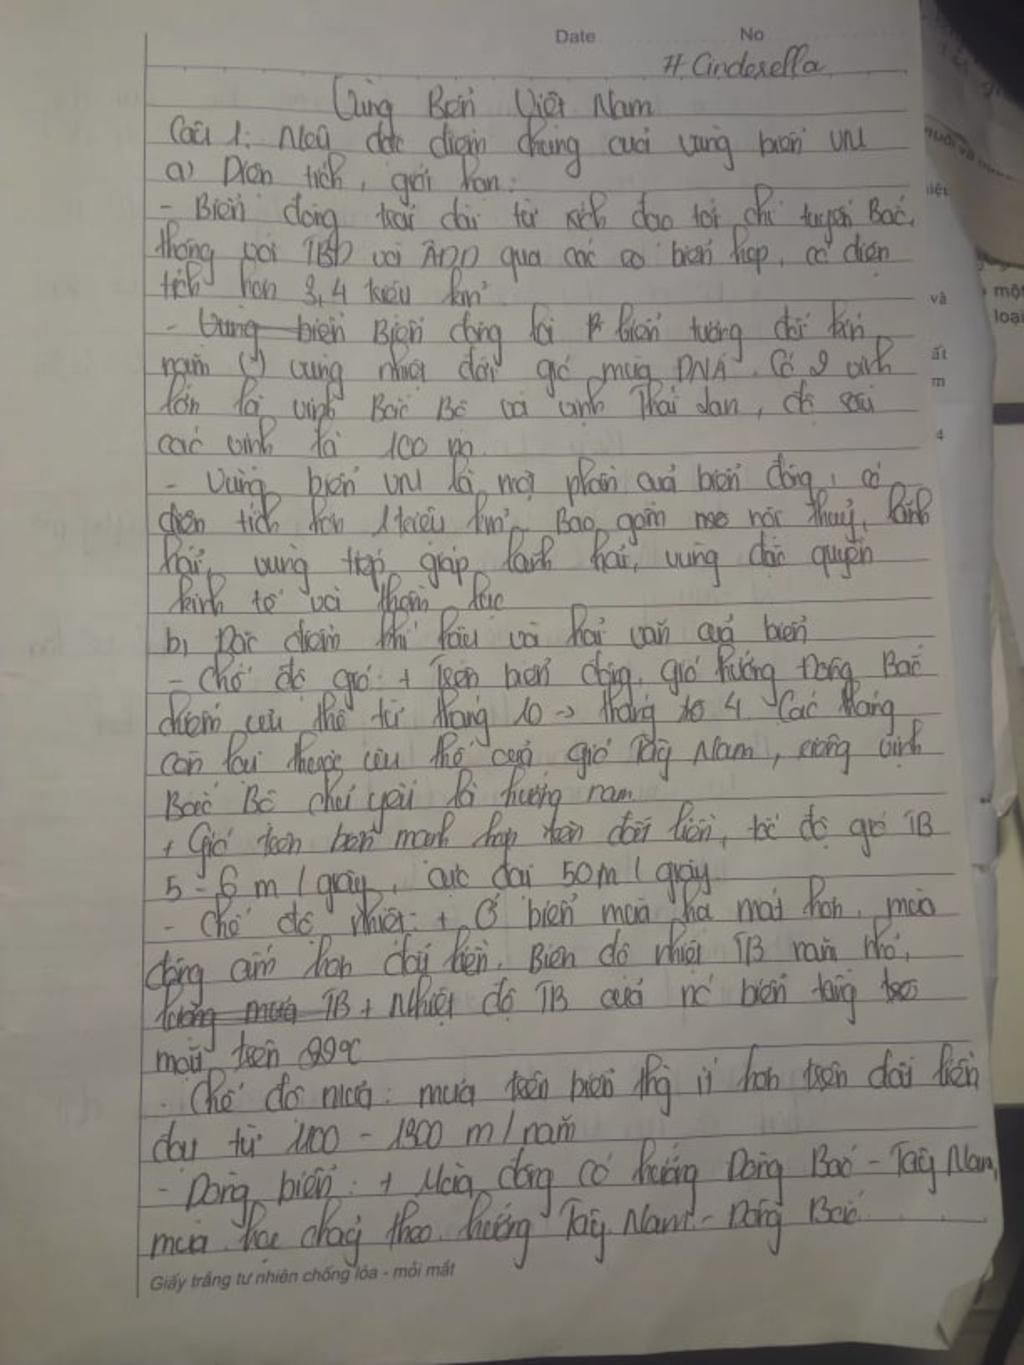 Date No
# Cinderella
Vùng Biển Việt Nam
Câu 1: Nêu đặc điểm chung của vùng biển VN
a) Diện tích, giới hạn:
- Biển đông trải dài từ xích đạo tới chí tuyến Bắc,
thông với TBD và ÂĐD qua các eo biển hẹp, có diện
tích hơn 3,4 triệu km²
- Vùng biển Biển đông là 1 biển tương đối kín
nằm (') vùng nhiệt đới gió mùa ĐNÁ. Có 2 vịnh
lớn là vịnh Bắc Bộ và vịnh Thái Lan, độ sâu
các vịnh là 100 m
- Vùng biển VN là một phần của biển đông, có
diện tích hơn 1 triệu km². Bao gồm nội thuỷ, lãnh
hải, vùng tiếp giáp lãnh hải, vùng đặc quyền
kinh tế và thềm lục
b) Đặc điểm khí hậu và hải văn của biển
- Chế độ gió: + Trên biển đông, gió hướng Đông Bắc
chiếm ưu thế từ tháng 10 -> tháng 4 Các tháng
còn lại thuộc ưu thế của gió Tây Nam, riêng vịnh
Bắc Bộ chủ yếu là hướng nam
+ Gió trên biển mạnh hơn trên đất liền, tốc độ gió TB
5 - 6 m / giây, cực đại 50 m / giây
- Chế độ nhiệt: + Ở biển mùa hạ mát hơn, mùa
đông ấm hơn đất liền. Biên độ nhiệt TB năm nhỏ,
lượng mưa TB + Nhiệt độ TB của nc biển tầng
mặt trên 23°C
- Chế độ mưa: mưa trên biển thg ít hơn trên đất liền
đạt từ 1100 - 1300 m / năm
- Dòng biển: + Mùa đông có hướng Đông Bắc - Tây Nam,
mùa hạ chảy theo hướng Tây Nam - Đông Bắc.
Giấy trắng tự nhiên chống lóa - mỏi mắt
và
ất
m
4
một
loại